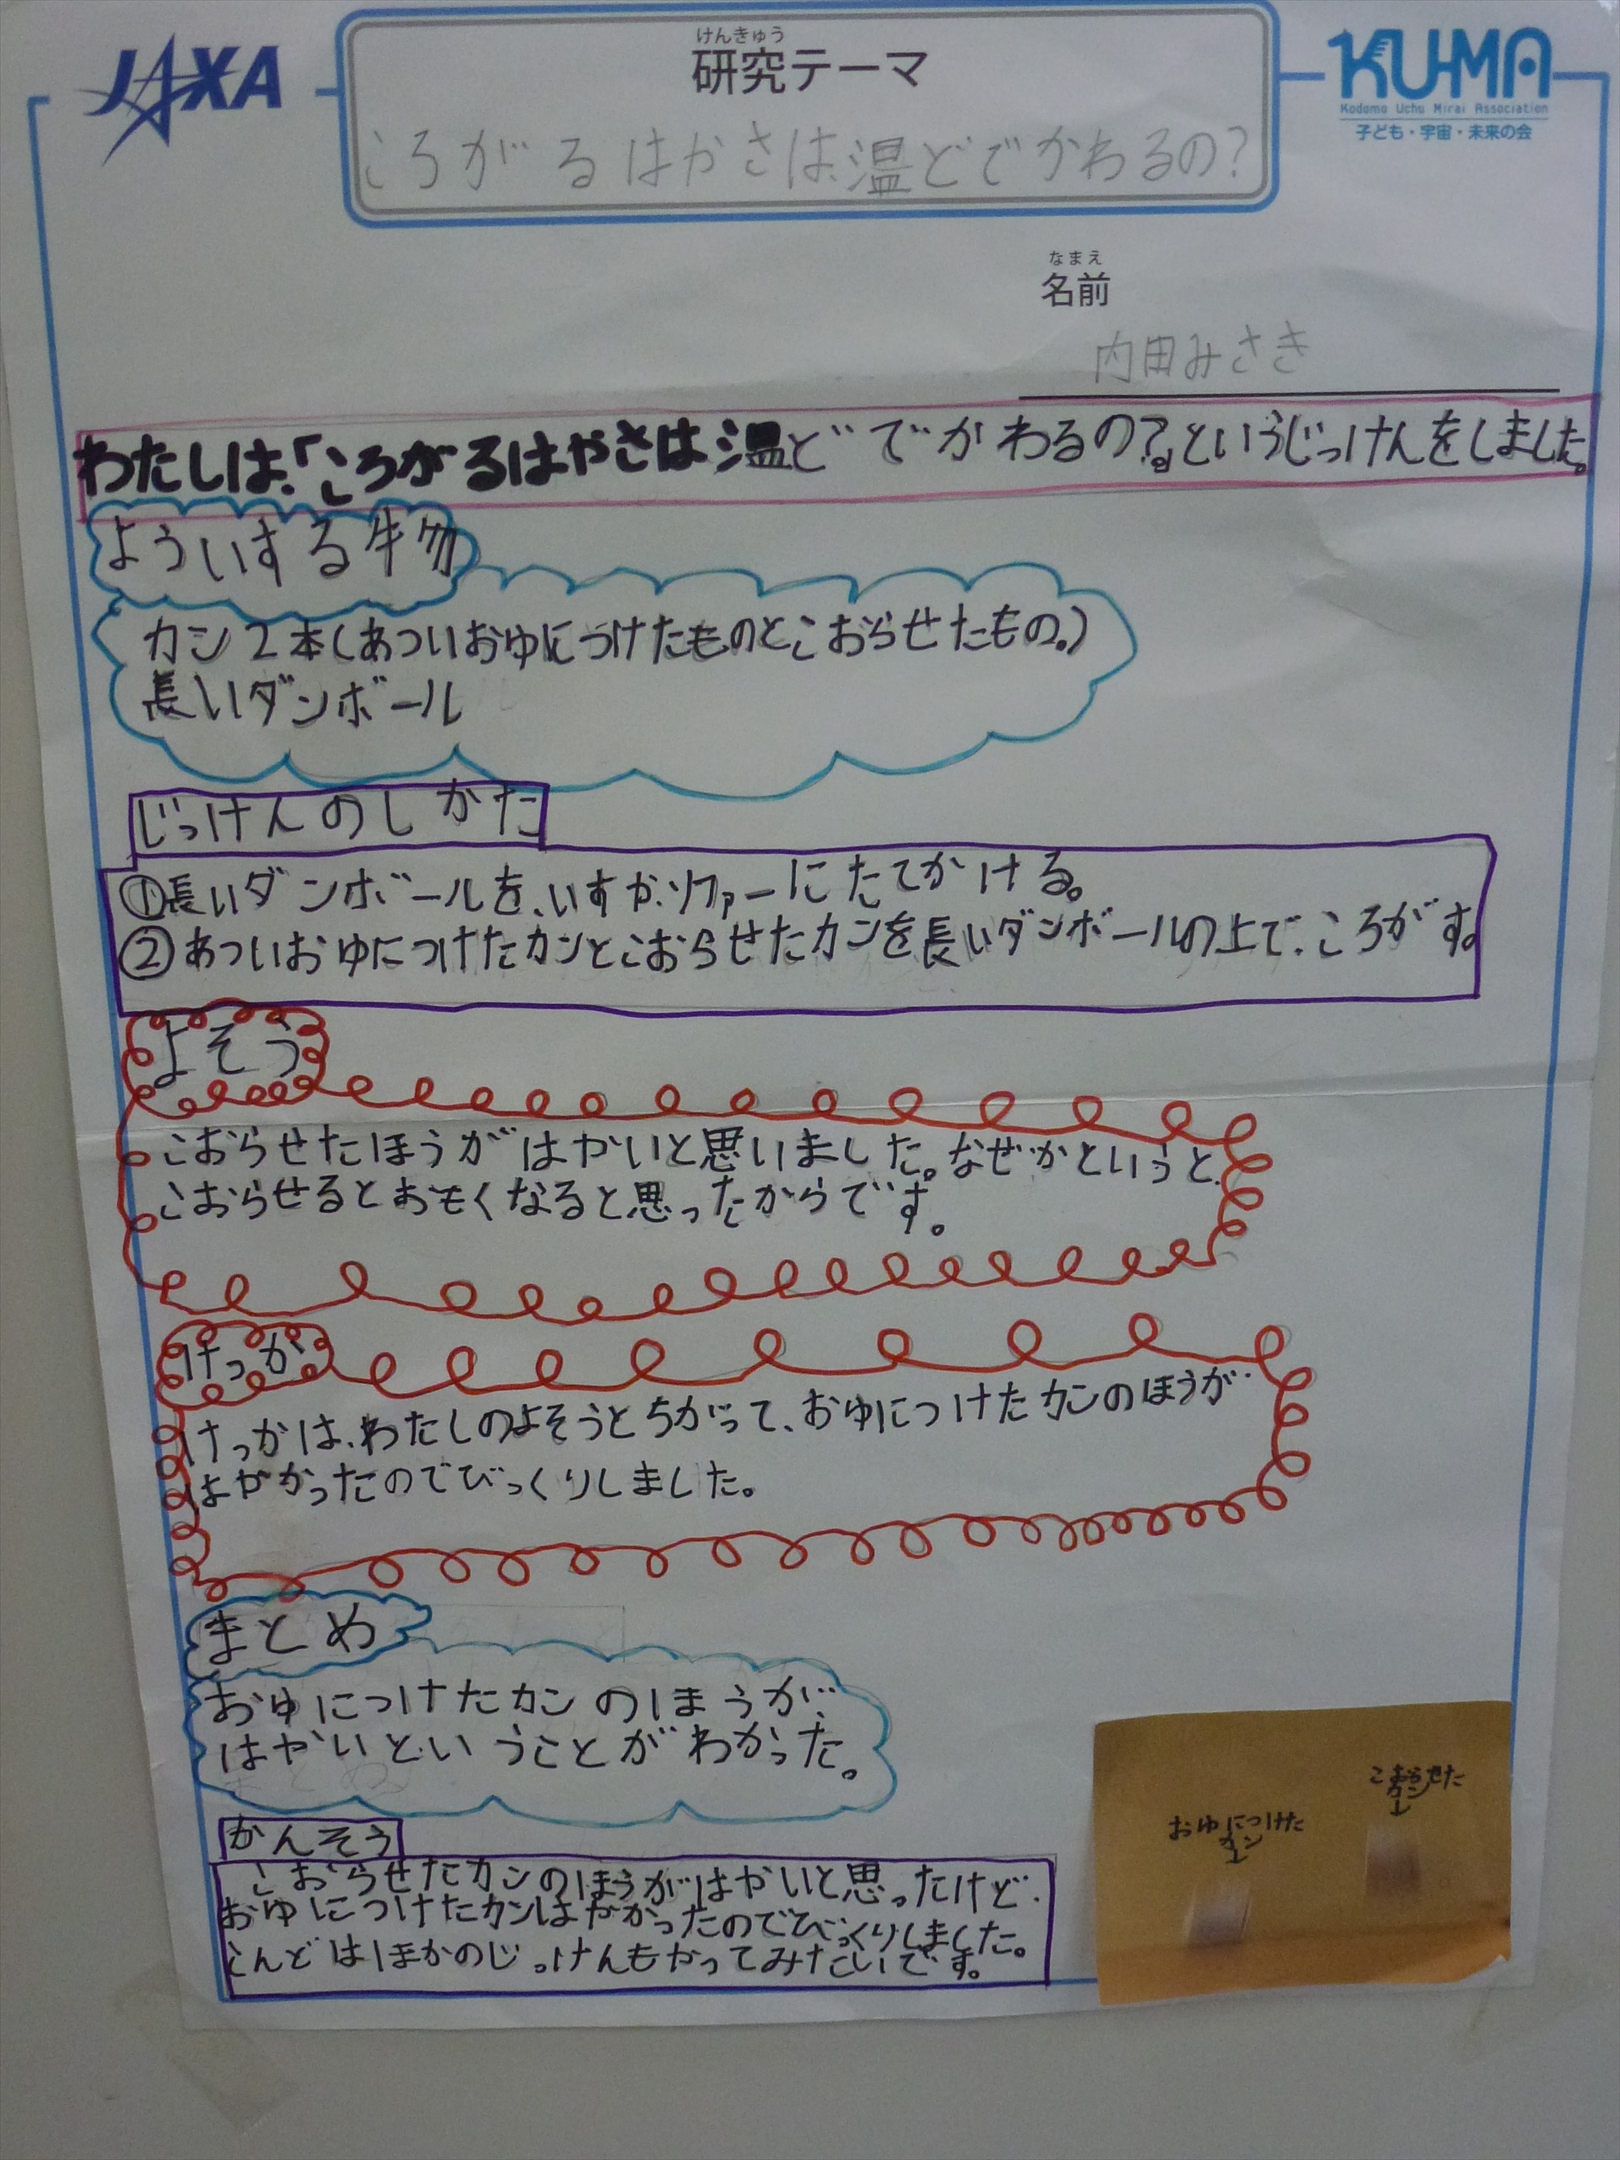 JAXA
けんきゅう
研究テーマ
KUMA
Kodomo Uchu Mirai Association
子ども・宇宙・未来の会
ころがるはやさは温どでかわるの?
なまえ
名前
内田みさき
わたしは、「ころがるはやさは温どでかわるの?」というじっけんをしました。
よういする物
カン2本(あついおゆにつけたものとこおらせたもの。)
長いダンボール
じっけんのしかた
①長いダンボールを、いすか、ソファーにたてかける。
②あついおゆにつけたカンとこおらせたカンを長いダンボールの上で、ころがす。
よそう
こおらせたほうがはやいと思いました。なぜかというと、
こおらせるとおもくなると思ったからです。
けっか
けっかは、わたしのよそうとちがって、おゆにつけたカンのほうが
はやかったのでびっくりしました。
まとめ
おゆにつけたカンのほうが、
はやいということがわかった。
かんそう
こおらせたカンのほうがはやいと思ったけど、
おゆにつけたカンはやかったのでびっくりしました。
こんどはほかのじっけんもやってみたいです。
こおらせた
カン
↓
おゆにつけた
カン
↓